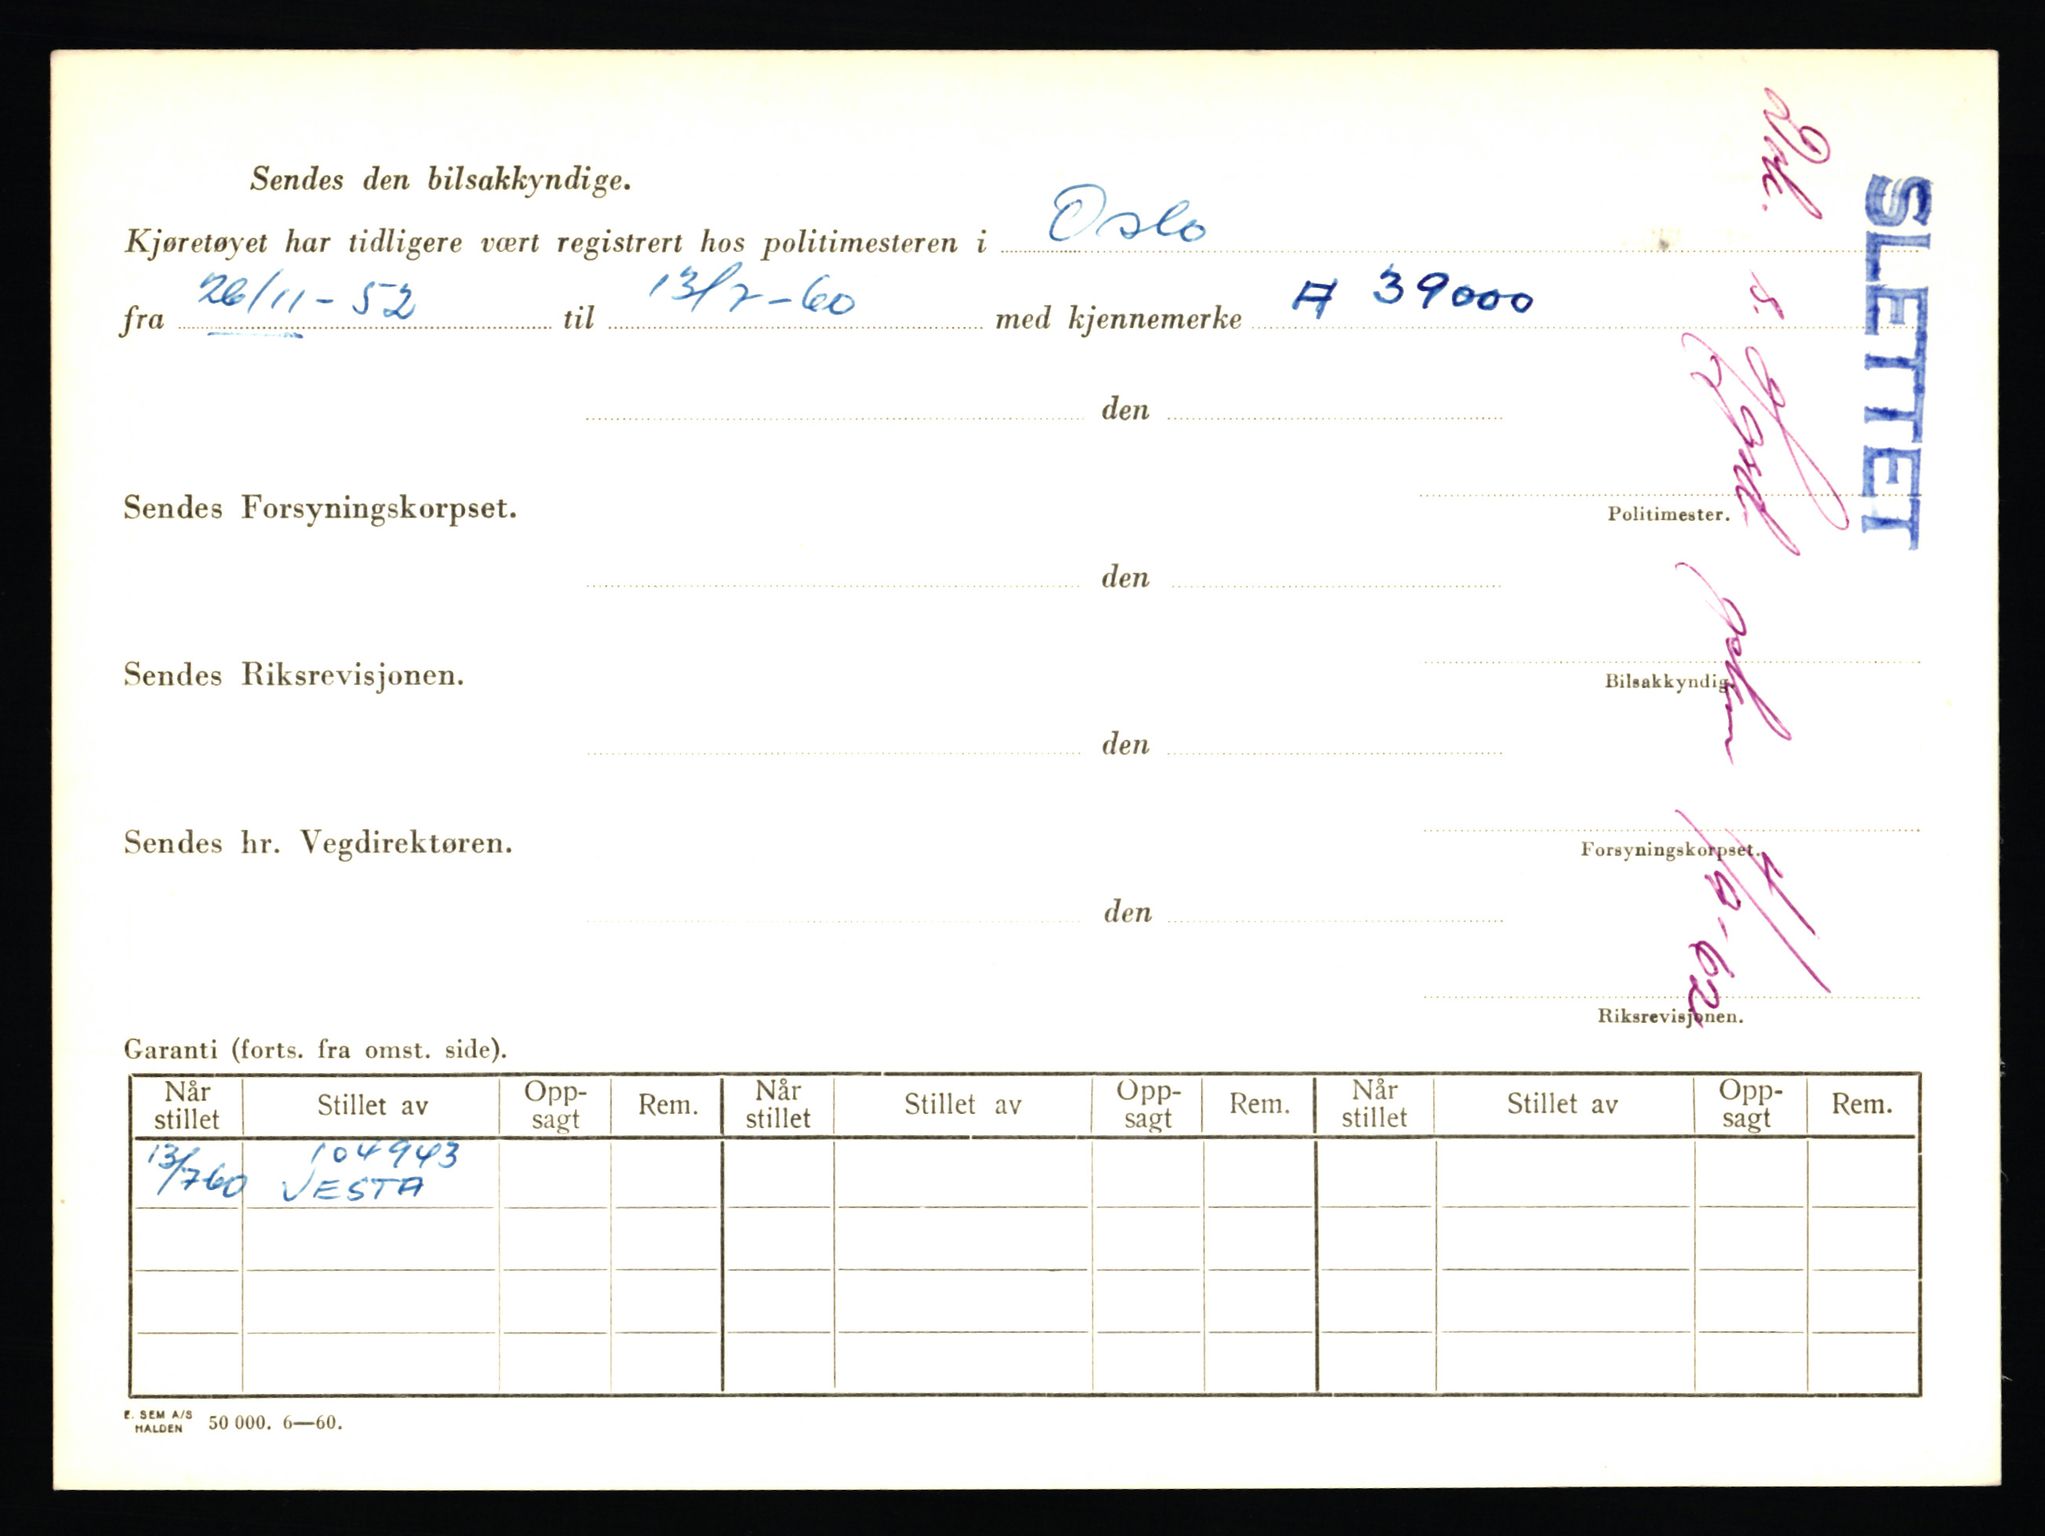 Sendes den bilsakkyndige.
Kjøretøyet har tidligere vært registrert hos politimesteren i Oslo
fra 26/11-52 til 13/7-60 med kjennemerke A 39000
den
Sendes Forsyningskorpset.
Politimester.
den
Sendes Riksrevisjonen.
Bilsakkyndig.
den
Sendes hr. Vegdirektøren.
Forsyningskorpset.
den
Riksrevisjonen.
SLETTET
4/10-62
Garanti (forts. fra omst. side).
Når stillet Stillet av Opp-sagt Rem. Når stillet Stillet av Opp-sagt Rem. Når stillet Stillet av Opp-sagt Rem.
13/7 60 104943
VESTA
E. SEM A/S
HALDEN 50 000. 6—60.